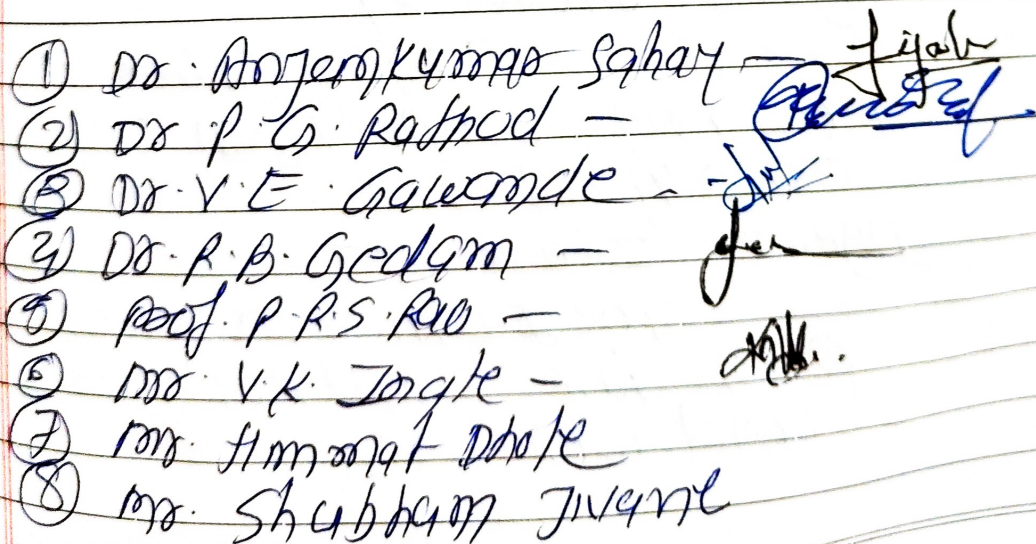 ① Dr. Anjemkumar Sahay -
② Dr P. G. Rathod -
③ Dr. V. E. Gawande -
④ Dr. R. B. Gedam -
⑤ Prof. P. R. S. Rao -
⑥ Mr. V. K. Ingle -
⑦ Mr. Himmat Dhote
⑧ Mr. Shubham Jivane